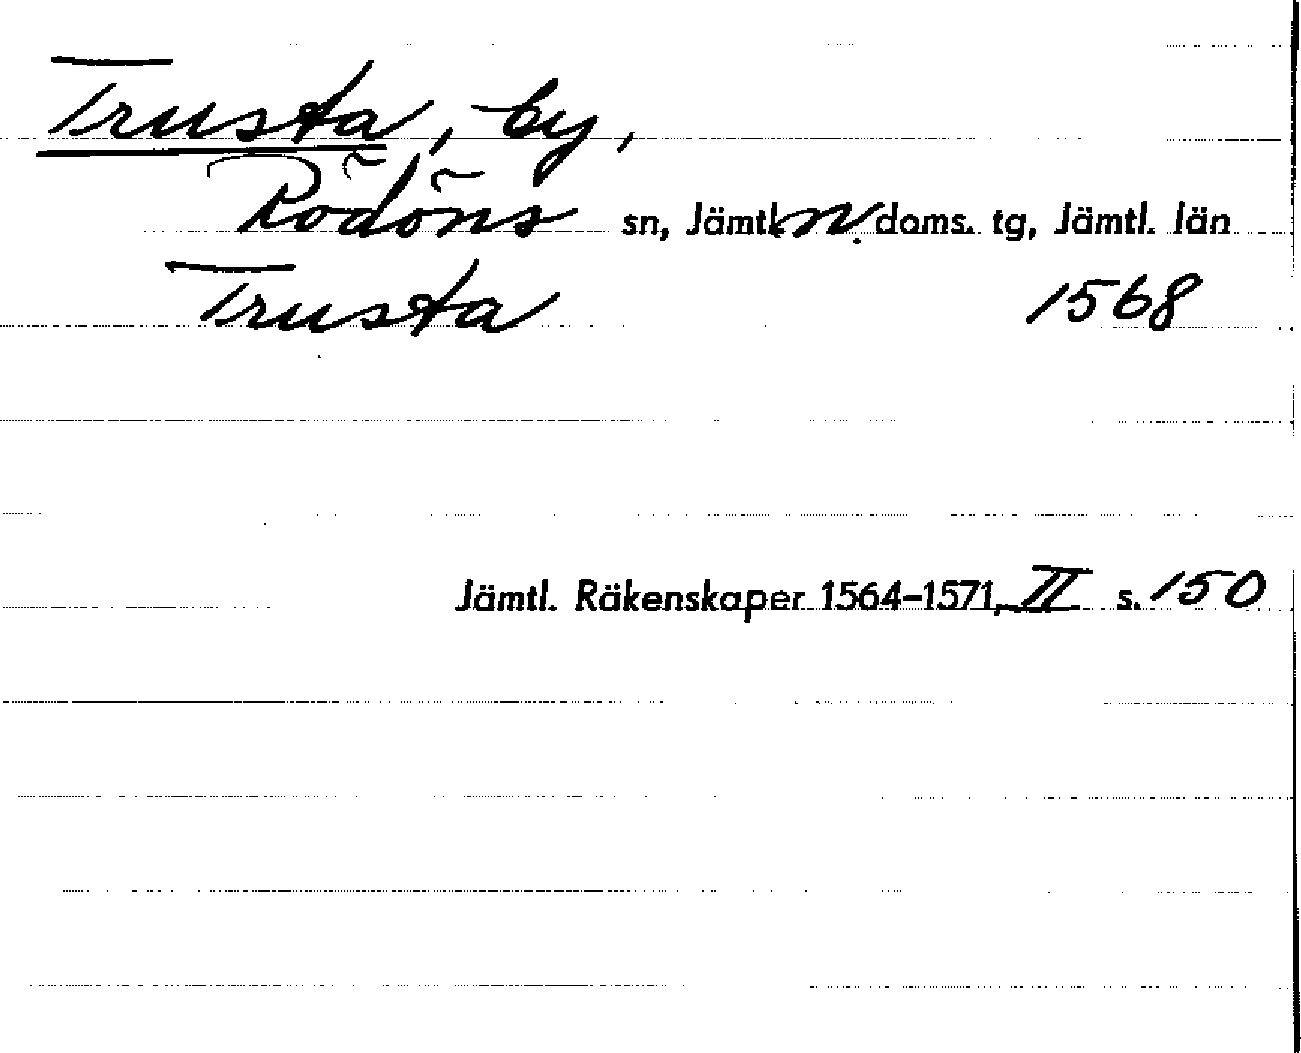 Trusta, by,
Rödöns sn, Jämtl. n. doms. tg, Jämtl. län
Trusta 1568
Jämtl. Räkenskaper 1564-1571, II s. 150